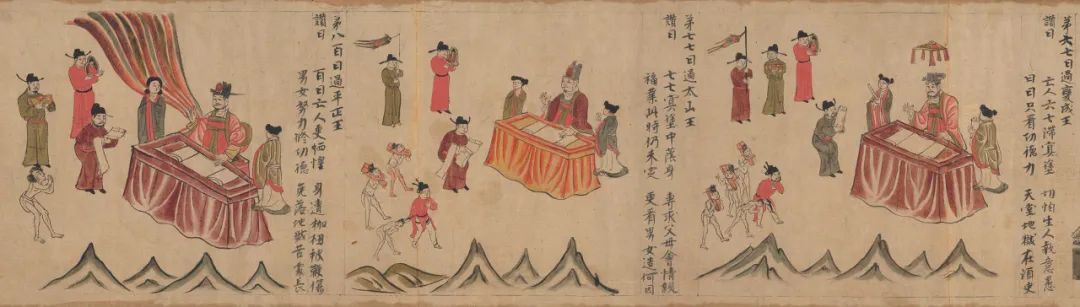 第六七日過變成王
讃曰 亡人六七滯冥塗 切怕生人執意愚
日日只看功德力 天堂地獄在須臾
第七七日過太山王
讃曰 七七冥塗中陰身 專求父母會情親
福業此時仍未定 更看男女造何因
第八百日過平正王
讃曰 百日亡人更恓惶 身遭枷杻被鞭傷
男女努力修功德 免落地獄苦處長